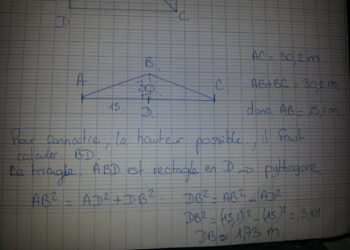 D
C
B
A
C.
15.
D.
AC = 30,2 m
AB+BC = 30,2 m
donc AB = 15,1 m
Pour connaitre, la hauteur possible, il faut
calculer BD.
Le triangle ABD est rectagle en D → pythagore
AB² = AD² + DB²
DB² = AB² - AD²
DB² = (15,1)² - (15)² = 3,01.
DB ≈ 1,73 m